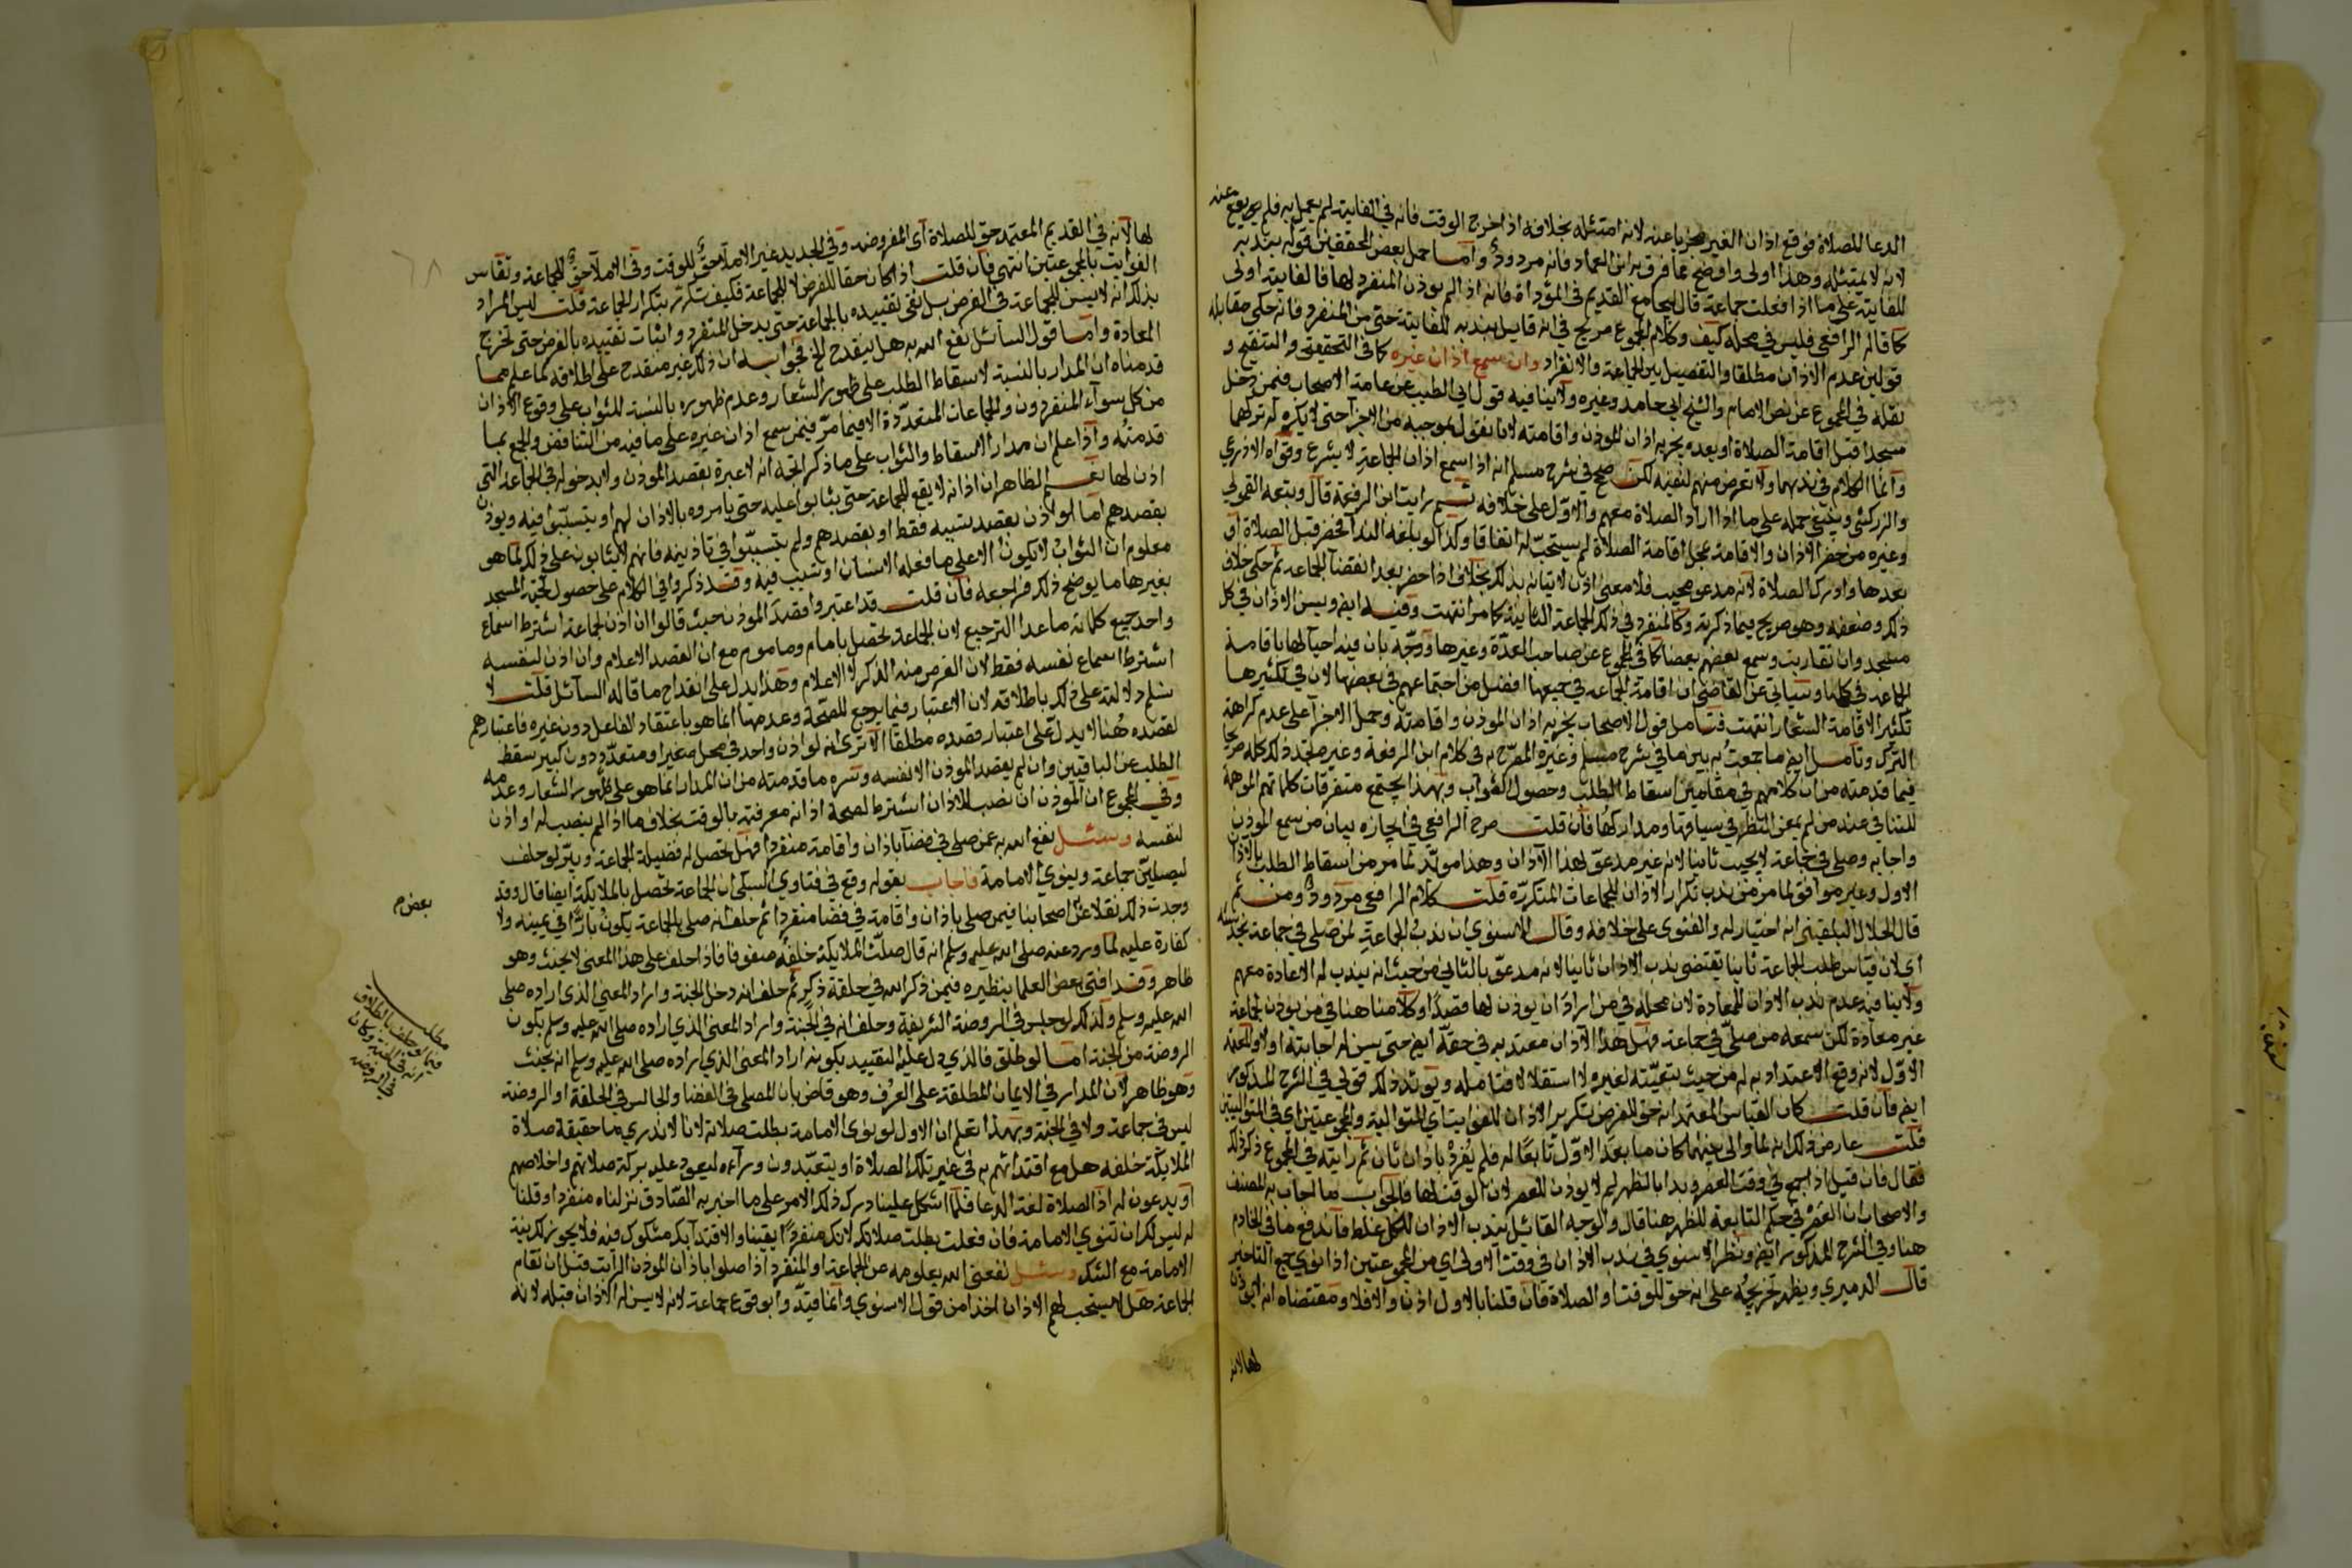 الدعا للصلاة فوقع اذان الغير مجزيا عنه لانه امتثله بخلافه اذا خرج الوقت فانه في الفايتة لم يعمل به فلم يقع عنه
لانه لا يمتثله وهذا اولى واوضح مما فرق به ابن العماد فانه مردود واما حمل بعض المحققين قوله بندبه
للفايتة على ما اذا فعلت جماعة قال بجامع القديم في المؤداة فانه اذا لم يوذن المنفرد لها فالفايتة اولى
كما قاله الرافعي فليس في محله كيف وكلام المجموع صريح في انه قايل بندبه للفايتة حتى من المنفرد فانه حكى مقابله
قولين عدم الاذان مطلقا والتفصيل بين الجماعة والانفراد وان سمع اذان غيره كما في التحقيق والتنقيح و
نقله في المجموع عن نص الامام والشيخ ابي حامد وغيره ولا ينافيه قول ابي الطيب عن عامة الاصحاب فيمن دخل
مسجدا قبل اقامة الصلاة او بعده يجزيه اذان الموذن واقامته لانا نقول بموجبه من الاجزآ حتى لا يكره له تركهما
وانما الكلام في ندبهما ولا تعرض منهم لنفيه لكن صح في شرح مسلم انه اذا سمع اذان الجماعة لا يشرع وقواه الاذرعي
والزركشي وينبغي حمله على ما اذا اراد الصلاة معهم والاول على خلافه ثم رايت ابن الرفعة قال وتبعه القمولي
وغيره من حضر الاذان والاقامة بمحل اقامة الصلاة لم يستحب له اتفاقا وكذا لو بلغه الندآ فحضر قبل الصلاة او
بعدها وادرك الصلاة لانه مدعو مجيب فلا معنى اذن لاتيانه بذلك بخلاف اذا حضر بعد انقضآ الجماعة ثم حكى خلاف
ذلك وضعفه وهو صريح فيما ذكرته وكالمنفرد في ذلك الجماعة الثانية كما مر انتهت وفيه ايضا ويسن الاذان في كل
مسجد وان تقاربت وسمع بعضهم بعضا كما في المجموع عن صاحب العدة وغيرها ووجه بان فيه احيآ لها باقامة
الجماعة في كلها وسياتي عن القاضي ان اقامة الجماعة في جميعها افضل من اجتماعهم في بعضها لان في تكثيرها
تكثير الاقامة الشعار انتهت فتامل قول الاصحاب يجزيه اذان الموذن واقامته وحمل الاجزآ على عدم كراهة
الترك وتامل ايضا ما جمعت به بين ما في شرح مسلم وغيره المصرح به في كلام ابن الرفعة وغيره تجد ذلك كله صريحا
فيما قدمته من ان كلامهم في مقامين اسقاط الطلب وحصول الثواب وبهذا يجتمع متفرقات كلماتهم الموهمة
للتنافي عند من لم يمعن النظر في سياقها ومداركها فان قلت صرح الرافعي في ايجازه بان من سمع الموذن
واجابه وصلى في جماعة لا يجيب ثانيا لانه غير مدعو بهذا الاذان وهذا مويد لما مر من اسقاط الطلب بالاذان
الاول وغير موافق لما مر من ندب تكرار الاذان للجماعات المتكررة قلت كلام الرافعي مردود ومن ثم
قال الجلال البلقيني انه اختيار له والفتوى على خلافه وقال الاسنوي ان ندب الجماعة لمن صلى في جماعة يخدشه
اي لان قياس طلب الجماعة ثانيا يقتضي ندب الاذان ثانيا لانه مدعو بالثاني من حيث انه يندب له الاعادة معهم
ولا ينافيه عدم ندب الاذان للمعادة لان محله في من اراد ان يوذن لها قصدا وكلامنا هنا في من يوذن لجماعة
غير معادة لكن سمعه من صلى في جماعة فهل هذا الاذان معتد به في حقه ايضا حتى يسن له اجابته او لا والمعتمد
الاول لانه وقع الاعتداد به له من حيث تبعيته لغيره لا استقلالا فتامله ويويد ذلك قولي في الشرح المذكور
ايضا فان قلت كان القياس المعتمد انه حق للفرض تكرير الاذان للفوايت اي المتوالية والمجموعتين اي في المتواليتين
قلت عارض ذلك انه لما والى بينهما كان ما بعد الاول تابعا له فلم يفرد باذان ثان ثم رايته في المجموع ذكر ذلك
فقال فان قيل اذا جمع في وقت العصر وبدا بالظهر لم لا يوذن للعصر لان الوقت لها فالجواب ما اجاب به المصنف
والاصحاب ان العصر في حكم التابعة للظهر هنا قال والوجه القايل بندب الاذان للكل غلط فاندفع ما في الخادم
هنا وفي الشرح المذكور ايضا ونظر الاسنوي في ندب الاذان في وقت الاولى اي من المجموعتين اذا نوى جمع التاخير
قال الدميري ويظهر تخريجه على انه حق للوقت او الصلاة فان قلنا بالاول اذن والا فلا ومقتضاه انه لا يوذن
لها لانه
لها لانه في القديم المعتمد حق للصلاة اي المفروضة وفي الجديد غير الاملآ حق للوقت وفي الاملآ حق للجماعة وتقاس
الفوايت بالمجموعتين انتهى فان قلت اذا كان حقا للفرض لا للجماعة فكيف تكرر بتكرار الجماعة قلت ليس المراد
بذلك انه لا يسن للجماعة في الفرض بل نفى تقييده بالجماعة حتى يدخل المنفرد واثبات تقييده بالفرض حتى تخرج
المعادة واما قول السائل نفع الله به هل ينقدح الخ فجوابه ان ذلك غير منقدح على اطلاقه لما علم مما
قدمناه ان المدار بالنسبة لاسقاط الطلب على ظهور الشعار وعدم ظهوره بالنسبة للثواب على وقوع الاذان
من كل سوآء المنفردون والجماعات المتعددة الا فيما مر فيمن سمع اذان غيره على ما فيه من التناقض والجمع بما
قدمته واذا علم ان مدار الاسقاط والثواب على ما ذكر اتجه انه لا عبرة بقصد الموذن ولا بدخوله في الجماعة التي
اذن لها نعم الظاهر ان اذانه لا يقع للجماعة حتى يثابوا عليه حتى يامروه بالاذان لهم او يتسببوا فيه ويوذن
بقصدهم اما لو اذن بقصد تسببه فقط او بقصدهم ولم يتسببوا في تاذينه فانهم لا يثابون على ذلك لما هو
معلوم ان الثواب لا يكون الا على ما فعله الانسان او تسبب فيه وقد ذكروا في الكلام على حصول تحية المسجد
بغيرها ما يوضح ذلك فراجعه فان قلت قد اعتبروا قصد الموذن حيث قالوا ان اذن لجماعة اشترط اسماع
واحد جميع كلماته ما عدا الترجيع لان الجماعة تحصل بامام وماموم مع ان القصد الاعلام وان اذن لنفسه
اشترط اسماع نفسه فقط لان الغرض منه الذكر لا الاعلام وهذا يدل على انقداح ما قاله السائل قلت لا
نسلم دلالته على ذلك باطلاقه لان الاعتبار فيما يرجع للصحة وعدمها انما هو باعتقاد الفاعل دون غيره فاعتبارهم
لقصده هنا لا يدل على اعتبار قصده مطلقا الا ترى انه لو اذن واحد في محل صغير او متعدد دون كبير سقط
الطلب عن الباقين وان لم يقصد الموذن الا نفسه وسره ما قدمته من ان المدار انما هو على ظهور الشعار وعدمه
وفي المجموع ان الموذن ان نصب للاذان اشترط لصحة اذانه معرفته بالوقت بخلاف ما اذا لم ينصب له او اذن
لنفسه وسئل نفع الله به عمن صلى في فضآ باذان واقامة منفردا فهل تحصل له فضيلة الجماعة ويبر لو حلف
ليصلين جماعة وينوي الامامة فاجاب بقوله وقع في فتاوي السبكي ان الجماعة تحصل بالملايكة ايضا قال وقد
وجدت ذلك نقلا عن اصحابنا فيمن صلى باذان واقامة في فضا منفردا ثم حلف انه صلى بالجماعة يكون بارا في يمينه ولا
كفارة عليه لما ورد عنه صلى الله عليه وسلم انه قال صلت الملايكة خلفه صفوفا فاذا حلف على هذا المعنى لا يحنث وهو
ظاهر وقد افتى بعض العلما بنظيره فيمن ذكر الله في حلقة ذكر ثم حلف انه دخل الجنة واراد المعنى الذي اراده صلى
الله عليه وسلم وكذلك لو جلس في الروضة الشريفة وحلف انه في الجنة واراد المعنى الذي اراده صلى الله عليه وسلم بكون
الروضة من الجنة اما لو طلق فالذي دل عليه التقييد بكونه اراد المعنى الذي اراده صلى الله عليه وسلم انه يحنث
وهو ظاهر لان المدار في الايمان المطلقة على العرف وهو قاض بان المصلي في الفضا والجالس في الحلقة او الروضة
ليس في جماعة ولا في الجنة وبهذا تعلم ان الاول لو نوى الامامة بطلت صلاته لانا لا ندري ما حقيقة صلاة
الملايكة خلفه هل مع اقتدائهم به في غير تلك الصلاة او يتعبدون ورآءه ليعود عليه بركة صلاتهم واخلاصهم
او يدعون له اذ الصلاة لغة الدعا فلما اشكل علينا درك ذلك الامر على ما اخبر به الصادق نزلناه منفردا وقلنا
له ليس لك ان تنوي الامامة فان فعلت بطلت صلاتك لانك منفرد يقينا والاقتدآ بك مشكوك فيه فلا يجوز لك نية
الامامة مع الشك وسئل نفعني الله بعلومه عن الجماعة او المنفرد اذا صلوا باذان الموذن الراتب قبل ان تقام
الجماعة هل لا يستحب لهم الاذان اخذا من قول الاسنوي وانما قيد وابوقوع جماعة لانه لا يسن له الاذان قبله لانه
بعض م
مطلب
فيما لو حلف بالطلاق
انه في الجنة وكان
في الروضة